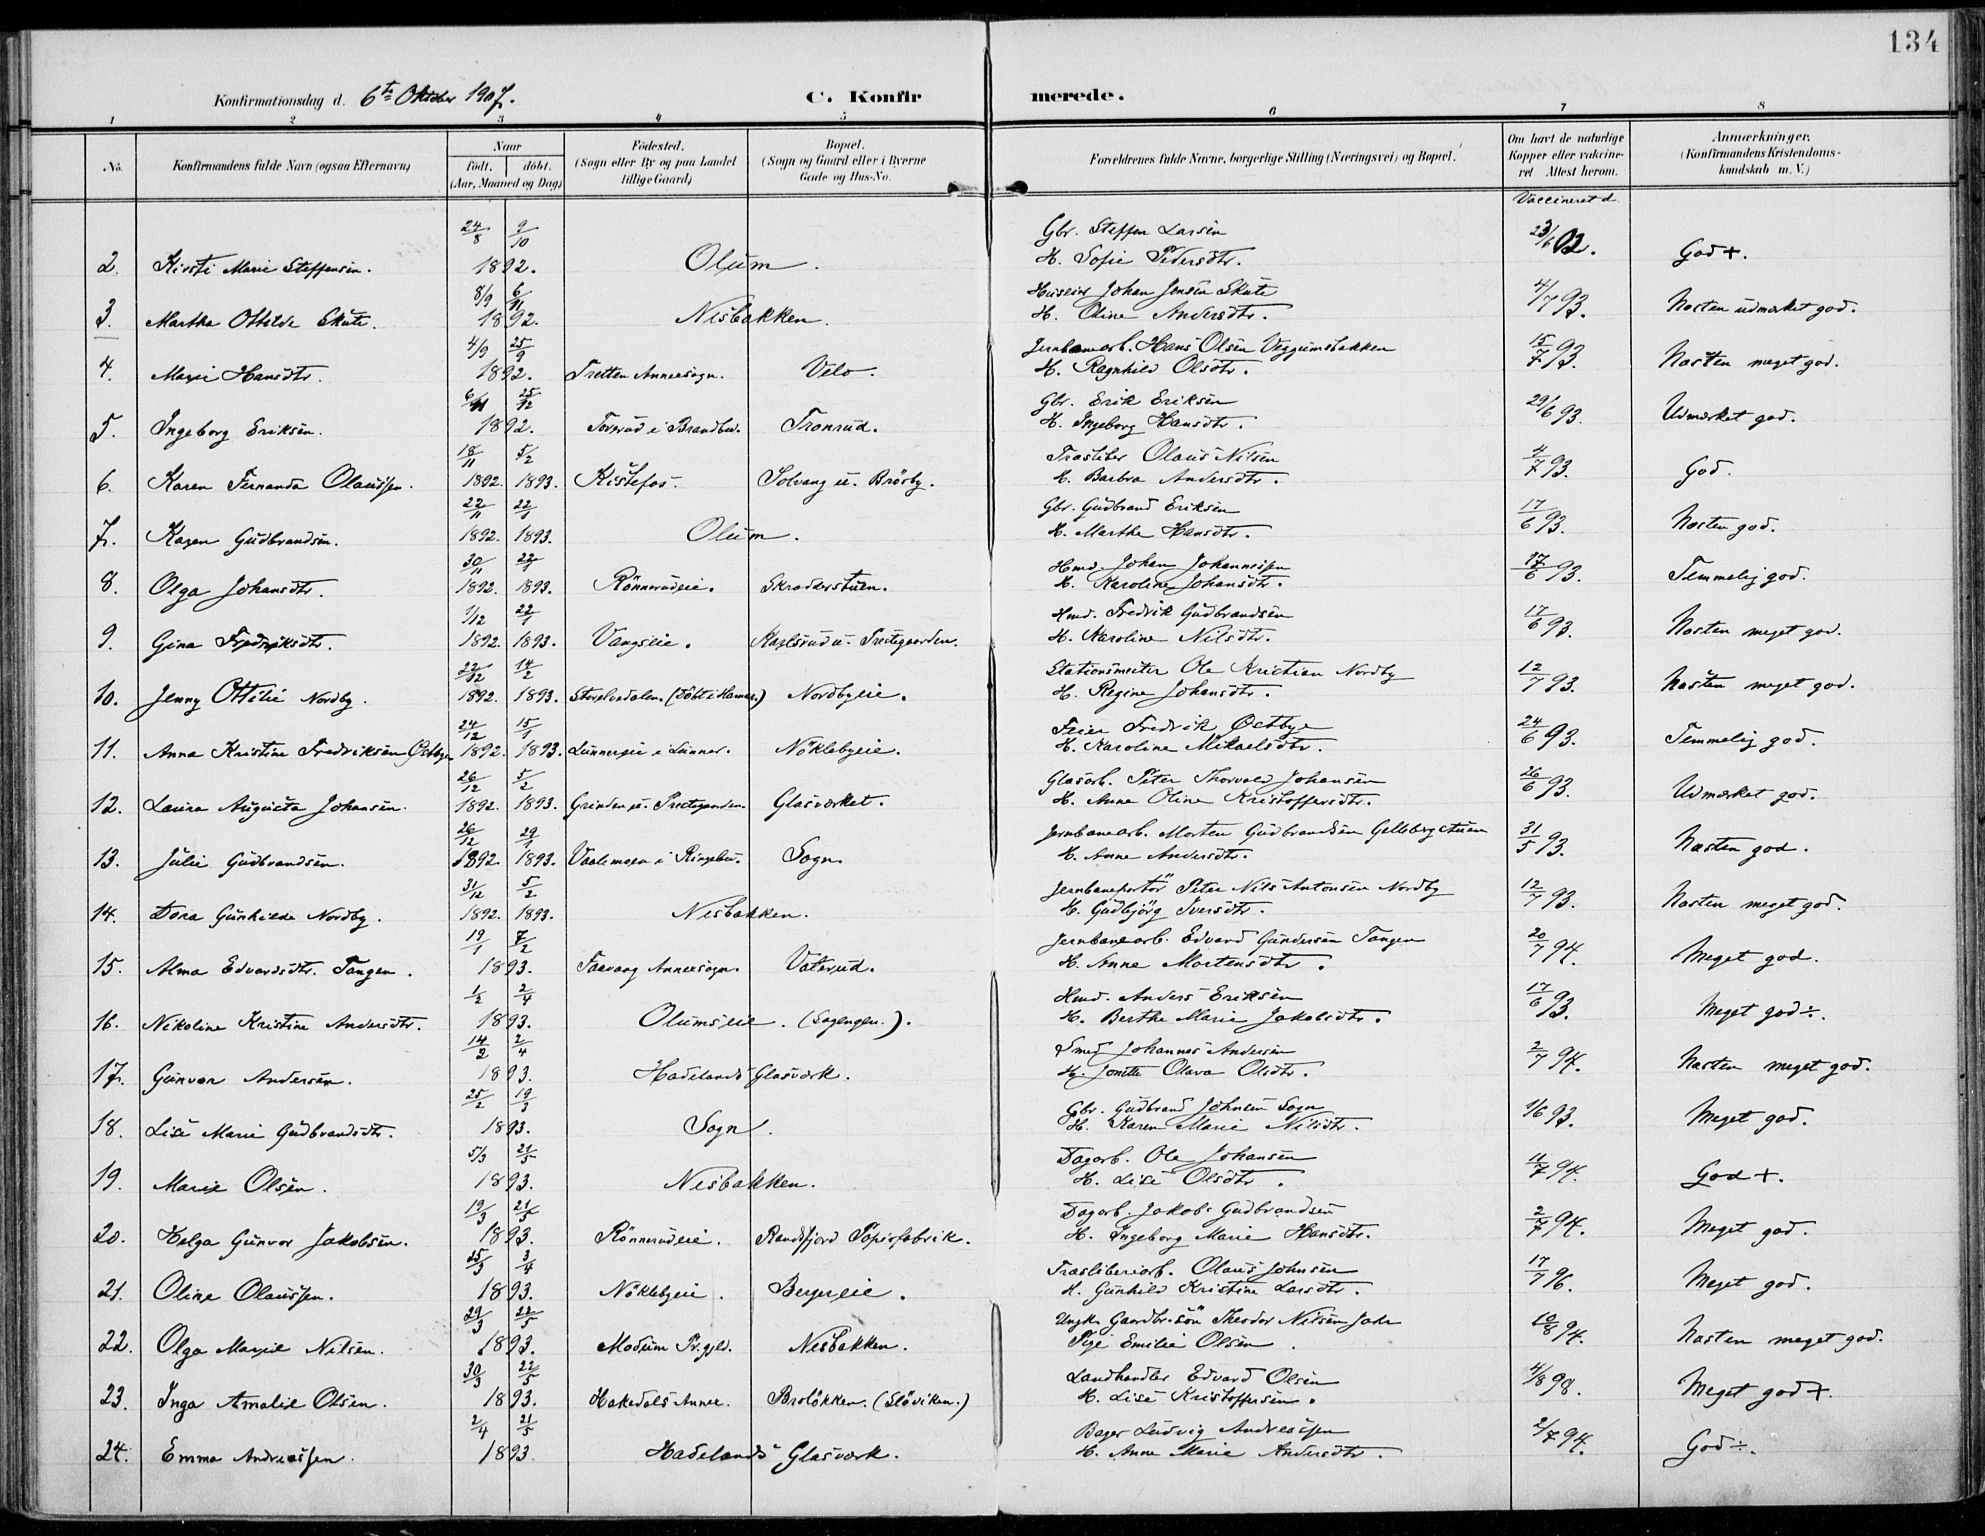 134
Konfirmationsdag d. 6te Oktober 1907.
C. Konfirmerede.
1 2 3 4 5 6 7 8
No. Konfirmandens fulde Navn (ogsaa Efternavn) Naar født, døbt. (Aar, Maaned og Dag) Fødested. (Sogn eller By og paa Landet tillige Gaard) Bopæl. (Sogn og Gaard eller i Byerne Gade og Hus-No. Forældrenes fulde Navne, borgerlige Stilling (Næringsvei) og Bopæl. Om havt de naturlige Kopper eller vaccineret. Attest herom. Anmærkninger. (Konfirmandens Kristendomskundskab m. V.)
Vaccineret d.
24/8 9/10 Gbr. Steffen Larsen 23/6 02.
2. Kirsti Marie Steffensen. 1892. Olum. H. Sofie Pedersdtr. God +.
8/9 6/11 Huseier Johan Jensen Skute 4/7 93.
3. Marthe Ottilde Skute. 1892. Nesbakken. H. Oline Andersdtr. Næsten udmærket god.
4/9 25/9 Jernbanearb. Hans Olsen Veggumsbakken 15/7 93.
4. Marie Hansdtr. 1892. Tretten Annexsogn. Velo. H. Ragnhild Olsdtr. Næsten meget god.
6/11 25/12 Gbr. Erik Eriksen 29/6 93.
5. Ingeborg Eriksen. 1892. Torsrud i Brandbu. Tronrud. H. Ingeborg Hansdtr. Udmærket god.
18/11 5/2 Træsliber Olaus Nilsen 4/7 93.
6. Karen Fernanda Olaussen. 1892. 1893. Kistefos. Solvang u. Brørby. H. Barbra Andersdtr. God.
22/11 22/1 Gbr. Gudbrand Eriksen 17/6 93.
7. Karen Gudbrandsen. 1892. 1893. Olum. H. Marthe Hansdtr. Næsten god.
30/11 22/1 Hmd. Johan Johannessen 17/6 93.
8. Olga Johansdtr. 1892. 1893. Rønnerudeie. Skrædderstuen. H. Karoline Johansdtr. Temmelig god.
1/12 22/1 Hmd. Fredrik Gudbrandsen 17/6 93.
9. Gina Fredriksdtr. 1892. 1893. Vangseie. Karlsrud u. Prestegaarden. H. Karoline Nilsdtr. Næsten meget god.
22/12 14/2 Stationsmester Ole Kristian Nordby 12/7 93.
10. Jenny Ottilie Nordby. 1892. 1893. Storelvedalen (Døbt i Hamar.) Nordbyeie. H. Regine Johansdtr. Næsten meget god.
24/12 15/1 Feier Fredrik Østbye 24/6 93.
11. Anna Kristine Fredriksen Østbye 1892. 1893. Lunnereie i Lunner. Nøklebyeie. H. Karoline Mikaelsdtr. Temmelig god.
26/12 5/2 Glasarb. Peter Thorvald Johansen 26/6 93.
12. Laura Augusta Johansen. 1892. 1893. Grinden u. Prestegaarden. Glasværket. H. Anne Oline Kristoffersdtr. Udmærket god.
26/12 29/1 Jernbanearb. Morten Gudbrandsen Gullbergstuen 31/5 93.
13. Julie Gudbrandsen. 1892. 1893. Vaalemoen i Ringebu. Sogn. H. Anne Andersdtr. Næsten god.
31/12 5/2 Jernbaneportør Peter Nils Antonsen Nordby 12/7 93.
14. Dora Gunhilde Nordby. 1892. 1893. Nesbakken. H. Gudbjörg Iversdtr. Næsten meget god.
19/1 7/2 Jernbanearb. Edvard Gundersen Tangen 20/7 94.
15. Alma Edvardsdtr. Tangen. 1893. Faavang Annexsogn. Vaterud. H. Anne Mortensdtr. Meget god.
1/2 2/4 Hmd. Anders Eriksen 17/6 93.
16. Nikoline Kristine Andersdtr. 1893. Olumseie. (Sagengen.). H. Berthe Marie Jakobsdtr. Meget god÷.
14/2 2/4 Smed Johannes Andersen 2/7 94.
17. Gunvor Andersen. 1893. Hadelands Glasværk. H. Jonette Olava Olsdtr. Næsten meget god.
25/2 19/3 Gbr. Gudbrand Johnsen Sogn 1/6 93.
18. Lise Marie Gudbrandsdtr. 1893. Sogn. H. Karen Marie Nilsdtr. Meget god.
5/3 21/5 Dagarb. Ole Johansen 11/7 94.
19. Marie Olsen. 1893. Nesbakken. H. Lise Olsdtr. God +.
19/3 21/5 Dagarb. Jakob Gudbrandsen 2/7 94.
20. Helga Gunvor Jakobsen. 1893. Rønnerudeie. Randsfjord Papirfabrik. H. Ingeborg Marie Hansdtr. Meget god.
25/3 3/4 Træsliberiarb. Olaus Johnsen 17/7 96.
21. Oline Olaussen. 1893. Nøklebyeie. Bergereie. H. Gunhild Kristine Larsdtr. Meget god.
29/3 22/5 Ungk. Gaardbr.søn Theodor Nilsen 10/8 94.
22. Olga Marie Nilsen. 1893. Modum Pr.gjld. Nesbakken. Pige Emilie Olsen. Næsten meget god.
30/3 22/5 Landhandler Edvard Olsen 4/8 98.
23. Inga Amalie Olsen. 1893. Hakedals Annex. Broløkken. (Sløviken.) H. Lise Kristoffersen. Meget god+.
2/4 21/5 Bager Ludvig Andreassen 2/7 94.
24. Emma Andreassen. 1893. Hadelands Glasværk. H. Anne Marie Andersdtr. God÷.